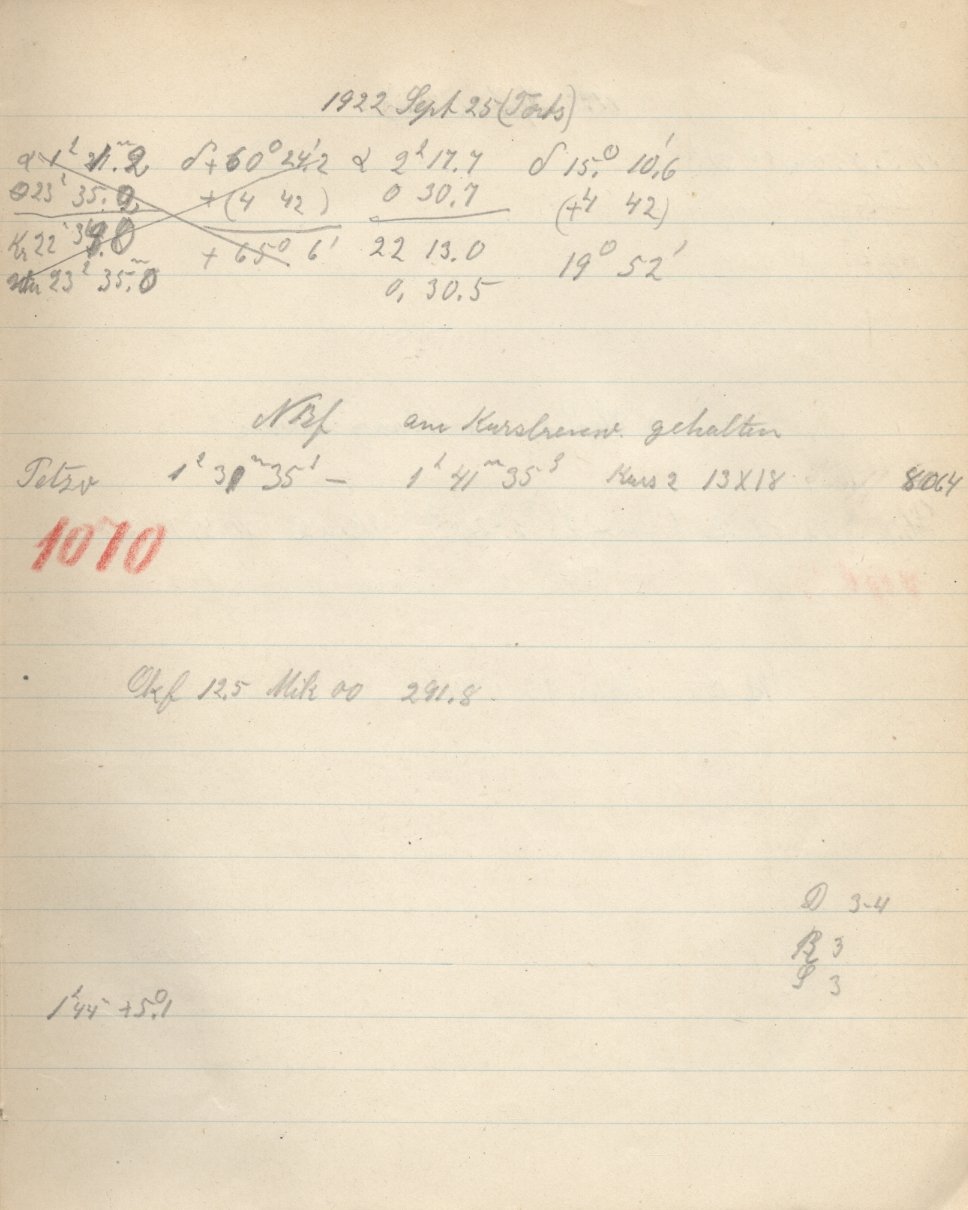 1922 Sept 25 (Forts)
α 1ʰ 21.ᵐ2 δ + 60° 24.'2 α 2ʰ 17.7 δ 15.° 10.'6
23ʰ 35.2 + (4 42) 0 30.7 (+4 42)
22 + 65° 6' 22 13.0 19° 52'
23ʰ 35.ᵐ0 0, 30.5
am gehalten
1ʰ 31ᵐ 35ˢ – 1ʰ 41ᵐ 35ˢ Kurs 2 13X18 8064
1070
Okf 12.5 Mik 00 291.8
D 3-4
R 3
S 3
1ʰ44ᵐ +5.°1